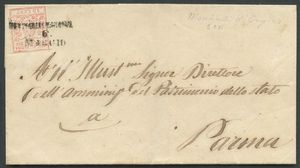 6
MAGGIO
All' Illust.mo Signor Direttore
dell' Amminis. del Patrimonio dello Stato
a
Parma